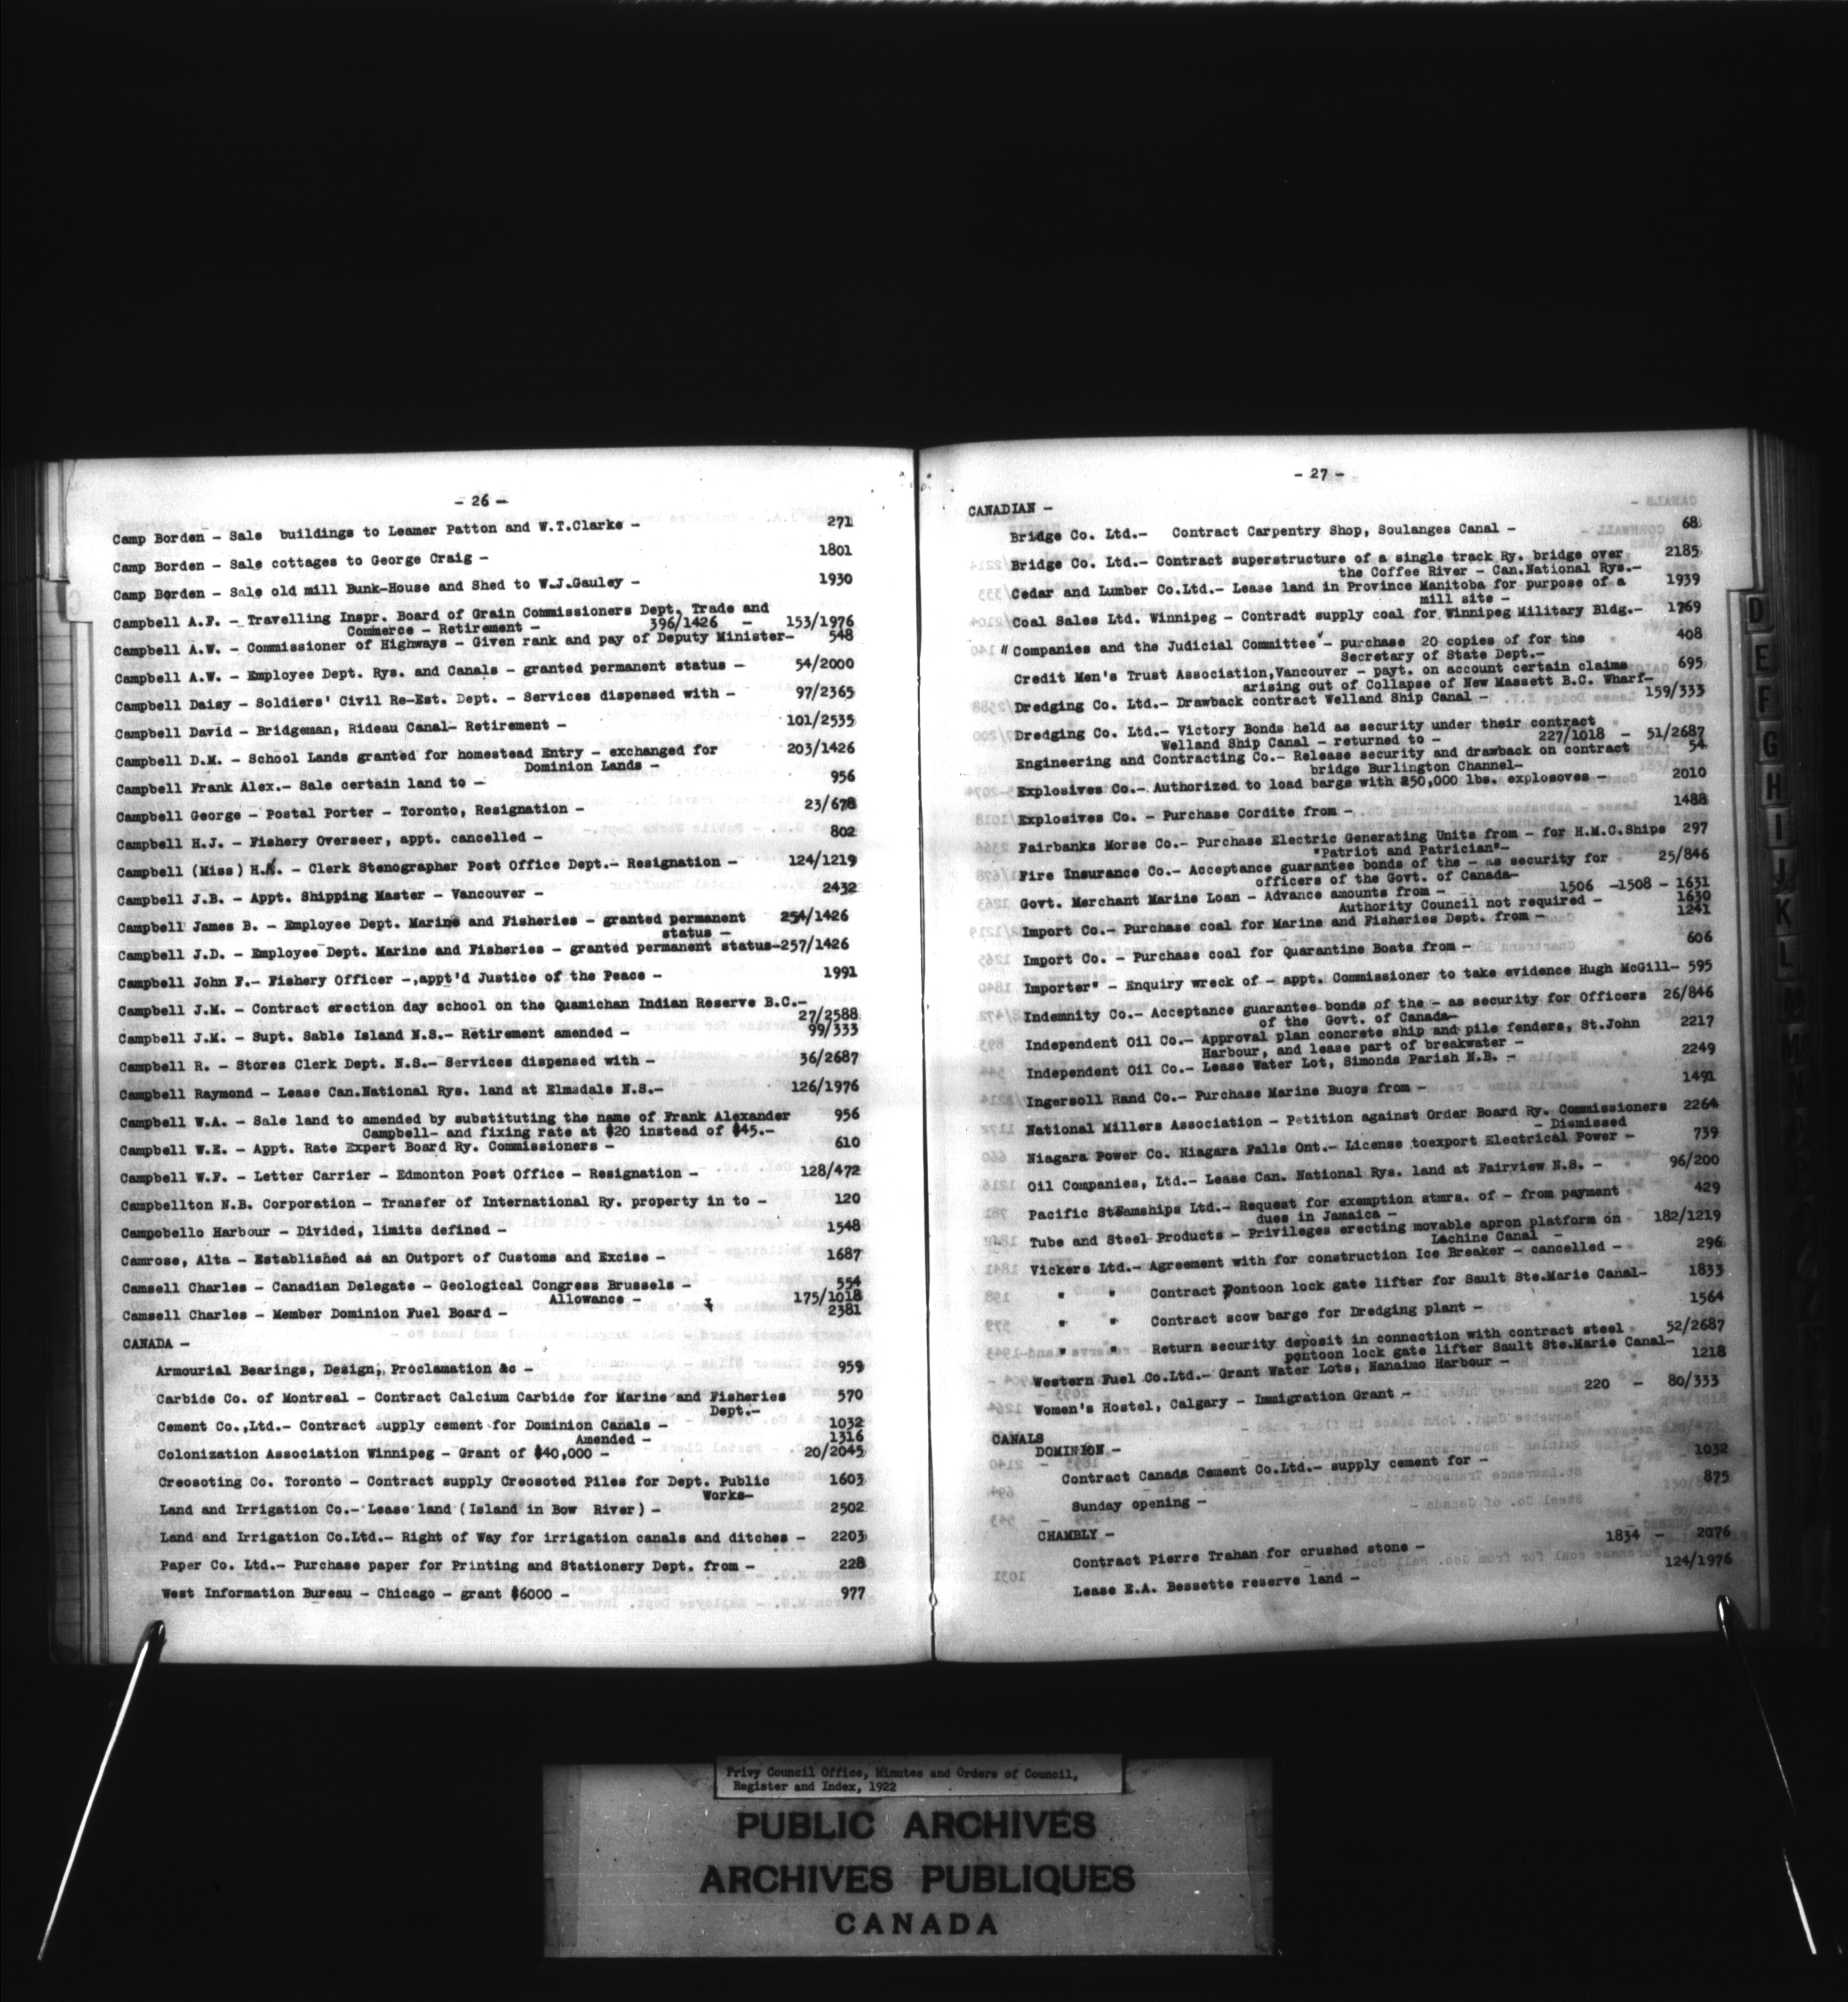 - 26 -
Camp Borden - Sale buildings to Leamer Patton and W.T.Clarke - 271
Camp Borden - Sale cottages to George Craig - 1801
Camp Borden - Sale old mill Bunk-House and Shed to W.J.Gauley - 1930
Campbell A.F. - Travelling Inspr. Board of Grain Commissioners Dept. Trade and
Commerce - Retirement - 396/1426 - 153/1976
Campbell A.W. - Commissioner of Highways - Given rank and pay of Deputy Minister- 548
Campbell A.W. - Employee Dept. Rys. and Canals - granted permanent status - 54/2000
Campbell Daisy - Soldiers' Civil Re-Est. Dept. - Services dispensed with - 97/2365
Campbell David - Bridgeman, Rideau Canal- Retirement - 101/2535
Campbell D.M. - School Lands granted for homestead Entry - exchanged for 203/1426
Dominion Lands -
Campbell Frank Alex.- Sale certain land to - 956
Campbell George - Postal Porter - Toronto, Resignation - 23/678
Campbell H.J. - Fishery Overseer, appt. cancelled - 802
Campbell (Miss) H.K. - Clerk Stenographer Post Office Dept.- Resignation - 124/1219
Campbell J.B. - Appt. Shipping Master - Vancouver - 2432
Campbell James B. - Employee Dept. Marine and Fisheries - granted permanent 254/1426
status -
Campbell J.D. - Employee Dept. Marine and Fisheries - granted permanent status-257/1426
Campbell John F.- Fishery Officer -,appt'd Justice of the Peace - 1991
Campbell J.M. - Contract erection day school on the Quamichan Indian Reserve B.C.-
27/2588
Campbell J.M. - Supt. Sable Island N.S.- Retirement amended - 99/333
Campbell R. - Stores Clerk Dept. N.S.- Services dispensed with - 36/2687
Campbell Raymond - Lease Can.National Rys. land at Elmsdale N.S.- 126/1976
Campbell W.A. - Sale land to amended by substituting the name of Frank Alexander 956
Campbell- and fixing rate at $20 instead of $45.-
Campbell W.E. - Appt. Rate Expert Board Ry. Commissioners - 610
Campbell W.F. - Letter Carrier - Edmonton Post Office - Resignation - 128/472
Campbellton N.B. Corporation - Transfer of International Ry. property in to - 120
Campobello Harbour - Divided, limits defined - 1548
Camrose, Alta - Established as an Outport of Customs and Excise - 1687
Camsell Charles - Canadian Delegate - Geological Congress Brussels - 554
Allowance - 175/1018
Camsell Charles - Member Dominion Fuel Board - 2381
CANADA -
Armourial Bearings, Design, Proclamation &c - 959
Carbide Co. of Montreal - Contract Calcium Carbide for Marine and Fisheries 570
Dept.-
Cement Co.,Ltd.- Contract supply cement for Dominion Canals - 1032
Amended - 1316
Colonization Association Winnipeg - Grant of $40,000 - 20/2045
Creosoting Co. Toronto - Contract supply Creosoted Piles for Dept. Public 1603
Works-
Land and Irrigation Co.- Lease land (Island in Bow River) - 2502
Land and Irrigation Co.Ltd.- Right of Way for irrigation canals and ditches - 2203
Paper Co. Ltd.- Purchase paper for Printing and Stationery Dept. from - 228
West Information Bureau - Chicago - grant $6000 - 977
- 27 -
CANADIAN -
Bridge Co. Ltd.- Contract Carpentry Shop, Soulanges Canal - 68
Bridge Co. Ltd.- Contract superstructure of a single track Ry. bridge over 2185
the Coffee River - Can.National Rys.-
Cedar and Lumber Co.Ltd.- Lease land in Province Manitoba for purpose of a 1939
mill site -
Coal Sales Ltd. Winnipeg - Contradt supply coal for Winnipeg Military Bldg.- 1769
"Companies and the Judicial Committee" - purchase 20 copies of for the 408
Secretary of State Dept.-
Credit Men's Trust Association,Vancouver - payt. on account certain claims 695
arising out of Collapse of New Massett B.C. Wharf-
Dredging Co. Ltd.- Drawback contract Welland Ship Canal - 159/333
Dredging Co. Ltd.- Victory Bonds held as security under their contract
Welland Ship Canal - returned to - 227/1018 - 51/2687
Engineering and Contracting Co.- Release security and drawback on contract 54
bridge Burlington Channel-
Explosives Co.- Authorized to load barge with 250,000 lbs. explosoves - 2010
Explosives Co. - Purchase Cordite from - 1488
Fairbanks Morse Co.- Purchase Electric Generating Units from - for H.M.C.Ships 297
"Patriot and Patrician"-
Fire Insurance Co.- Acceptance guarantee bonds of the - as security for 25/846
officers of the Govt. of Canada-
Govt. Merchant Marine Loan - Advance amounts from - 1506 -1508 - 1631
Authority Council not required - 1630
Import Co.- Purchase coal for Marine and Fisheries Dept. from - 1241
Import Co. - Purchase coal for Quarantine Boats from - 606
Importer" - Enquiry wreck of - appt. Commissioner to take evidence Hugh McGill- 595
Indemnity Co.- Acceptance guarantee bonds of the - as security for Officers 26/846
of the Govt. of Canada-
Independent Oil Co.- Approval plan concrete ship and pile fenders, St.John 2217
Harbour, and lease part of breakwater -
Independent Oil Co.- Lease Water Lot, Simonds Parish N.B. - 2249
Ingersoll Rand Co.- Purchase Marine Buoys from - 1491
National Millers Association - Petition against Order Board Ry. Commissioners 2264
- Dismissed
Niagara Power Co. Niagara Falls Ont.- License toexport Electrical Power - 739
Oil Companies, Ltd.- Lease Can. National Rys. land at Fairview N.S. - 96/200
Pacific Steamships Ltd.- Request for exemption stmrs. of - from payment 429
dues in Jamaica -
Tube and Steel Products - Privileges erecting movable apron platform on 182/1219
Lachine Canal -
Vickers Ltd.- Agreement with for construction Ice Breaker - cancelled - 296
" " Contract Pontoon lock gate lifter for Sault Ste.Marie Canal- 1833
" " Contract scow barge for Dredging plant - 1564
" " Return security deposit in connection with contract steel 52/2687
pontoon lock gate lifter Sault Ste.Marie Canal-
Western Fuel Co.Ltd.- Grant Water Lots, Nanaimo Harbour - 1218
Women's Hostel, Calgary - Immigration Grant - 220 - 80/333
CANALS
DOMINION -
Contract Canada Cement Co.Ltd.- supply cement for - 1032
Sunday opening - 875
CHAMBLY -
Contract Pierre Trahan for crushed stone - 1834 - 2076
Lease E.A. Bessette reserve land - 124/1976
D
E
F
G
H
I
J
K
L
Privy Council Office, Minutes and Orders of Council,
Register and Index, 1922
PUBLIC ARCHIVES
ARCHIVES PUBLIQUES
CANADA